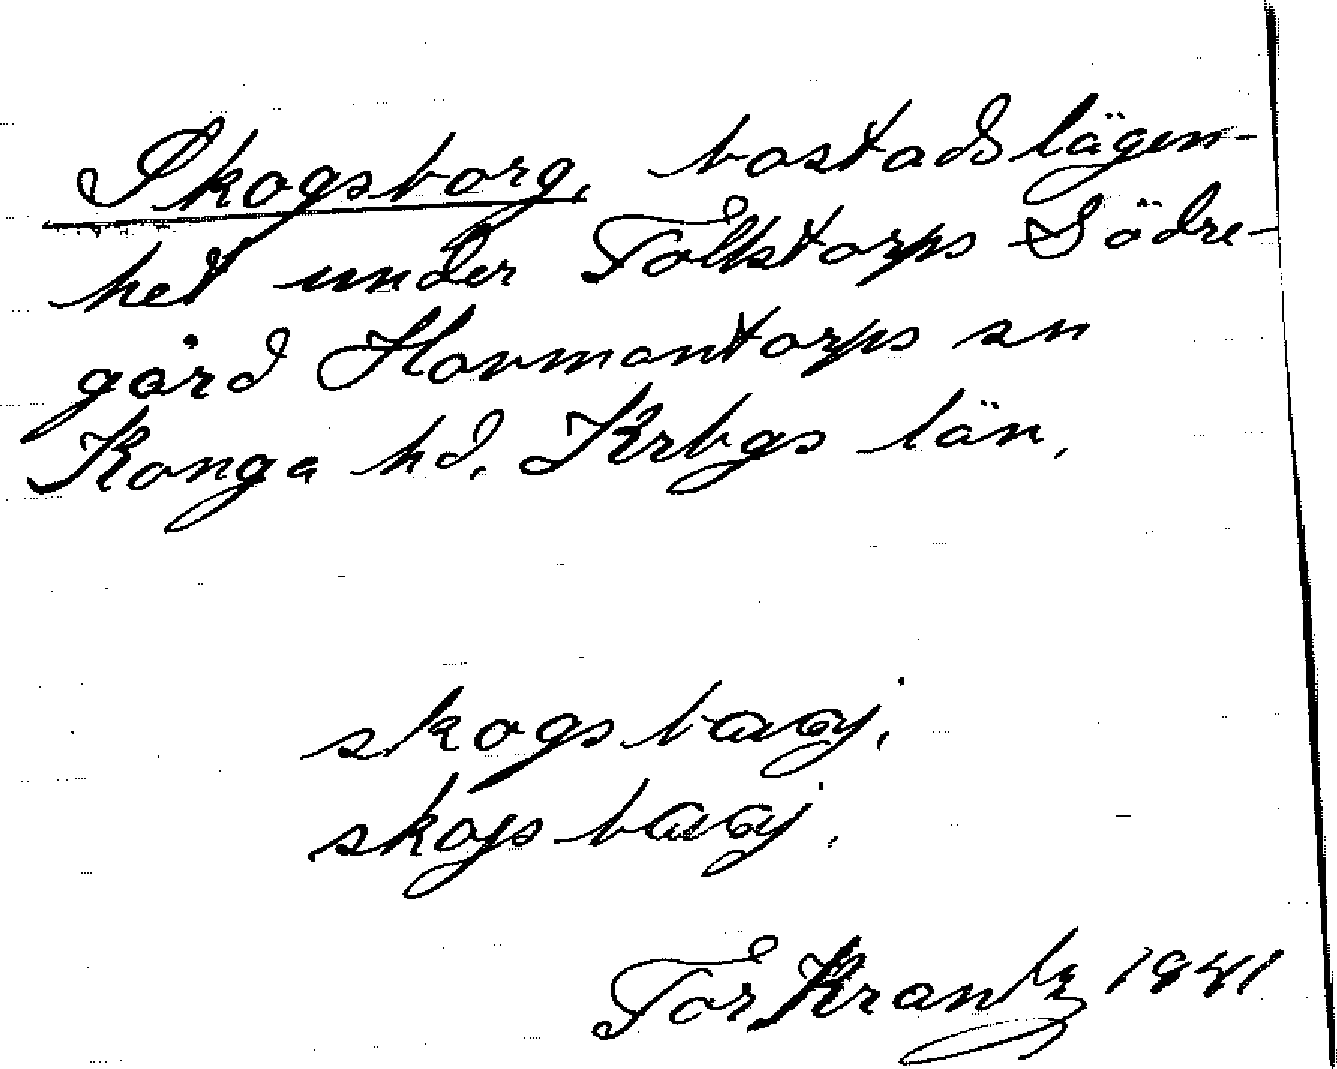 Skogsborg, bostadslägen-
het under Folktorps Södre-
gård Hovmantorps sn
Konga hd. Krbgs län.
skogsbaaj.
skojsbaaj.
Tor Krantz 1941